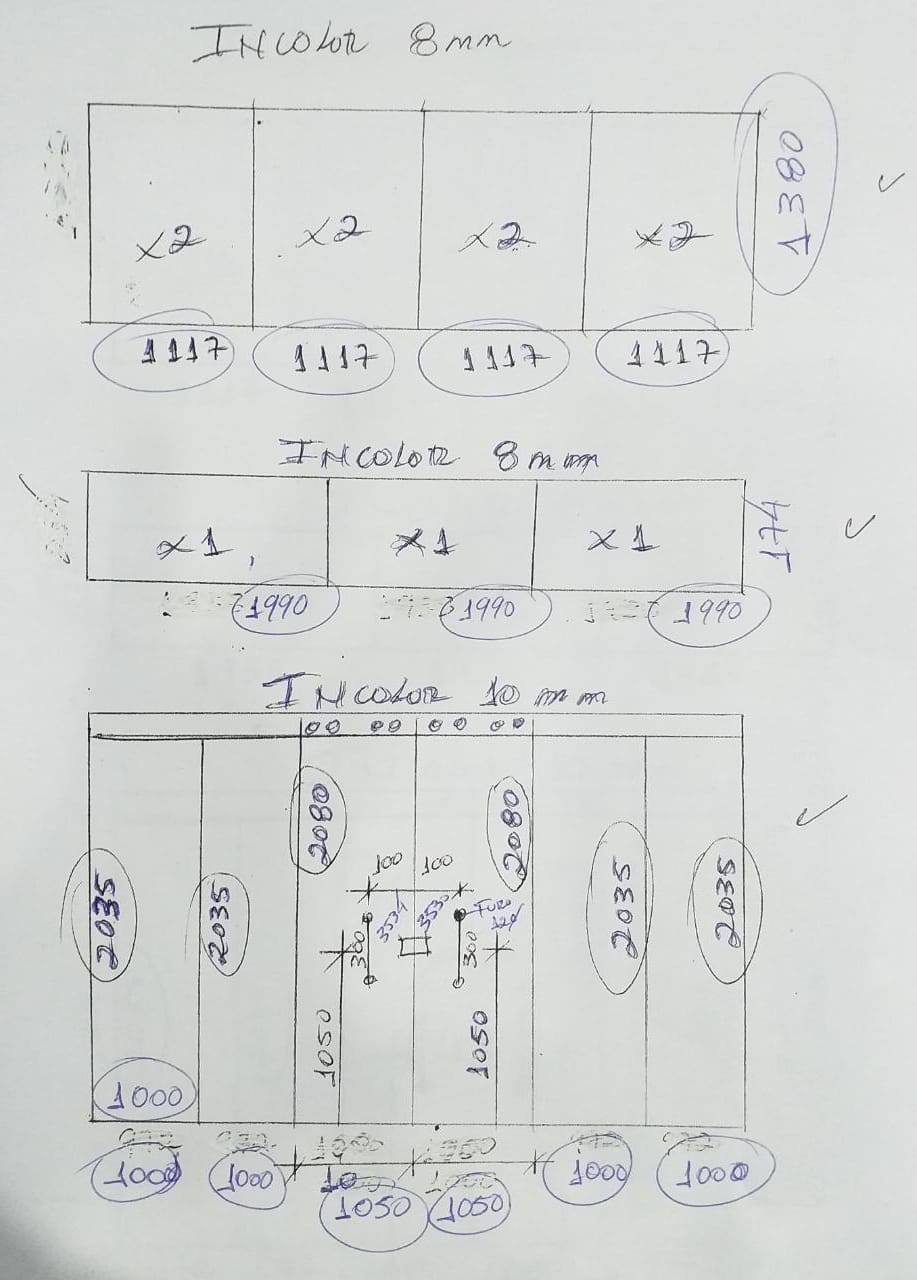 INCOLOR 8mm
1380
x2 x2 x2 x2
1117 1117 1117 1117
INCOLOR 8mm
174
x1 x1 x1
1990 1990 1990
INCOLOR 10mm
2080 2080
100 100
2035 2035 2035 2035
3534 3530
FURO
120
300 300
1050 1050
1000
1000 1000 1050 1050 1000 1000